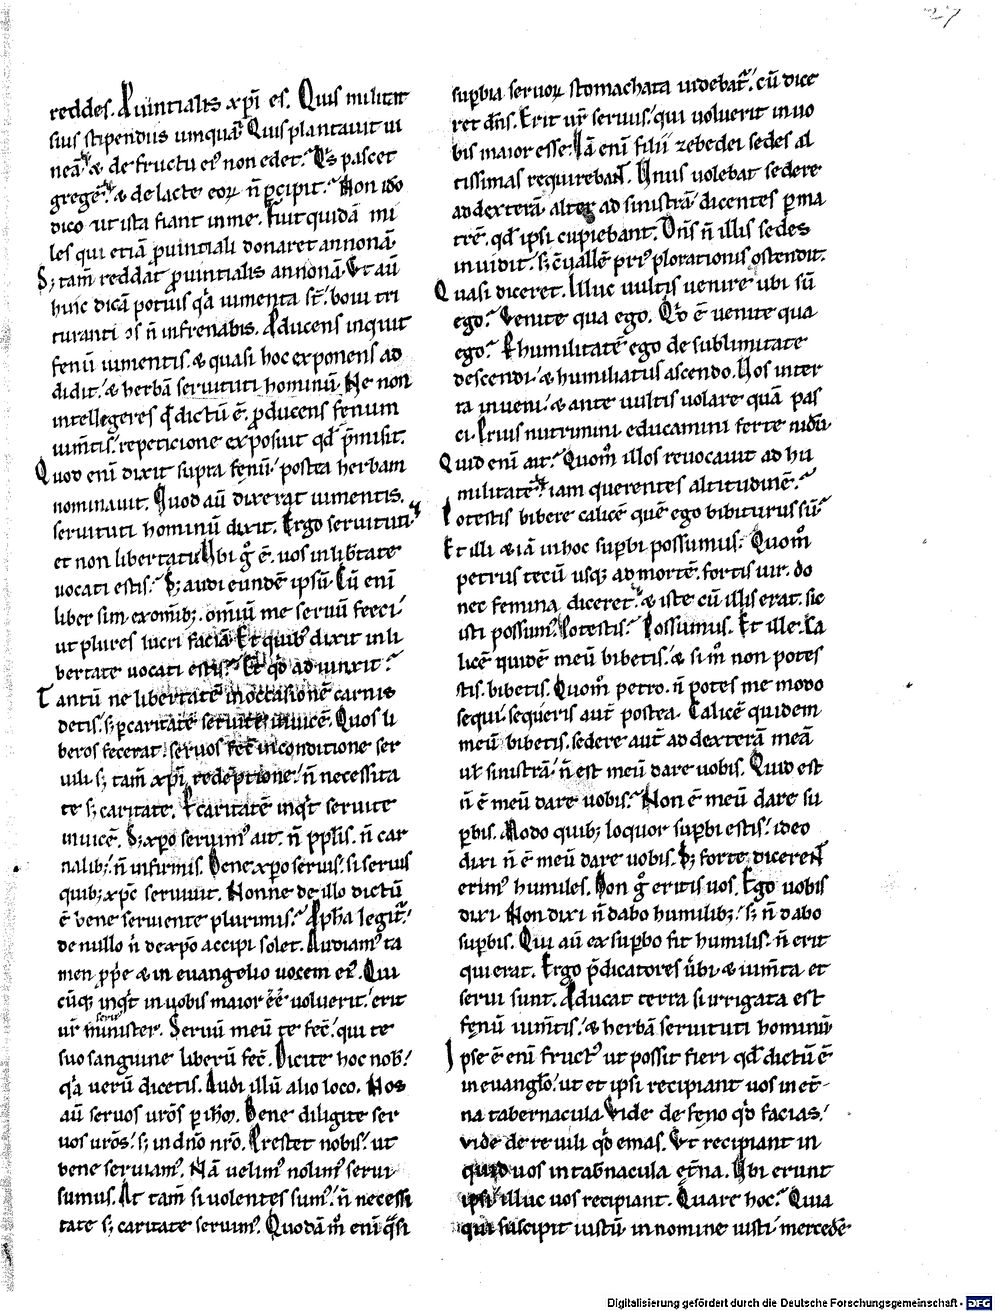 27
reddes. Puintialis xp̄i es. Quis militat
suis stipendiis umquā? Quis plantauit ui
neā & de fructu ei' non edet? Qis pascet
gregē? & de lacte eoꝝ n̄ ꝑcipit? Non ido
dico ut ista fiant in me. Fuit quidā mi
les qui etiā ꝓuintiali donaret annonā.
S; tam̄ reddat ꝓuintialis annonā. Vt aū
huic dicā potius qa iumenta st̄. boui tri
turanti os n̄ infrenabis. Producens inquit
fenū iumentis. & quasi hoc exponens ad
didit. & herbā seruituti hominū. Ne non
intellegeres qd̄ dictū ē. ꝓducens fenum
ium̄tis. repeticione exposuit qd p̄misit.
Quod enī dixit supra fenū. postea herbam
nominauit. Quod aū dixerat iumentis.
seruituti hominū dixit. Ergo seruituti
et non libertati. Ubi g̊ ē. uos in lib̄tate
uocati estis? S; audi eundē ipsū. Cū enī
liber sim ex omīb;. omīū me seruū feci
ut plures lucri faciā. Et quib' dixit in li
bertate uocati estis? Et qd adiunxit?
Tantū ne libertatē in occasionē carnis
detis. s; ꝑ caritatē seruite inuicē. Quos li
beros fecerat. seruos fec̄ in conditione ser
uili s; tam̄ xp̄i redēptione. n̄ necessita
te s; caritate. P caritatē inqt seruite
inuicē. S; xpo seruim' ait. n̄ ppl̄is. n̄ car
nalib;. n̄ infirmis. Bene xpo seruis. si seruis
quib; xp̄c seruiuit. Nonne de illo dictū
ē bene seruiente plurimis? Apha legit̄.
de nullo n̄ de xpo accipi solet. Audiam' ta
men ꝓpe & in euangelio uocem ei'. Qui
cūq; inqt in uobis maior ēē uoluerit. erit
ur̄ minister. Seruū meū te fec̄. qui te
suo sanguine liberū fec̄. Dicite hoc nob'.
qa uerū dicetis. Audi illū alio loco. Nos
aū seruos uros̄ ꝑ ihm̄. Bene diligite ser
uos uros̄. s; in dn̄o nr̄o. Prestet nobis. ut
bene seruiam'. Nā uelim' nolim' serui
sumus. At tam̄ si uolentes sum'. n̄ necessi
tate s; caritate seruim'. Quodā m̊ enī qsi
supbia seruoꝝ stomachata uidebat̄. cū dice
ret dn̄s. Erit ur̄ seruus. qui uoluerit in uo
bis maior esse. Iā enī filii zebedei sedes al
tissimas requirebant. Unus uolebat sedere
ad dexterā. alter ad sinistrā. dicentes ꝑ ma
trē. qd ipsi cupiebant. Dn̄s n̄ illis sedes
inuidit. s; cūallē pri' plorationis ostendit.
Quasi diceret. Illuc uultis uenire ubi sū
ego? Venite qua ego. Qd ē uenite qua
ego? P humilitatē ego de sublimitate
descendi. & humiliatus ascendo. Uos inter
ra inueni. & ante uultis uolare quā pas
ci. Prius nutrimini educamini ferte nidū.
Quid enī ait? Quom̊ illos reuocauit ad hu
militatē iam querentes altitudinē?
Potestis bibere calicē quē ego bibiturus sū?
Et illi & iā in hoc supbi possumus. Quom̊
petrus tecū usq; ad mortē. fortis uir. do
nec femina diceret. & iste cū illis erat. sic
isti possum'. Potestis? Possumus. Et ille. Ca
licē quidē meū bibetis. & si m̊ non potes
tis. bibetis. Quom̊ petro. n̄ potes me modo
sequi. sequeris aut̄ postea. Calicē quidem
meū bibetis. sedere aut̄ ad dexterā meā
ul̄ sinistrā. n̄ est meū dare uobis. Quid est
n̄ ē meū dare uobis? Non ē meū dare su
ꝑbis. Modo quib; loquor supbi estis. ideo
dixi n̄ ē meū dare uobis. S; forte dicerent
erim' humiles. Non g̊ eritis uos. Ego uobis
dixi. Non dixi n̄ dabo humilib;. s; n̄ dabo
supbis. Qui aū ex supbo fit humilis. n̄ erit
qui erat. Ergo p̄dicatores ūbi & ium̄ta et
serui sunt. Educat terra si irrigata est
fenū ium̄tis. & herbā seruituti hominū
Ipse ē enī fruct' ut possit fieri qd dictū ē
in euangl̄o. ut et ipsi recipiant uos in et̄
na tabernacula. Vide de feno qd facias.
vide de re uili qd emas. Vt recipiant in
quid uos in tab̄nacula et̄na. Ubi erunt
ipsi illuc uos recipiant. Quare hoc? Quia
qui suscipit iustū in nomine iusti mercedē
Digitalisierung gefördert durch die Deutsche Forschungsgemeinschaft - DFG